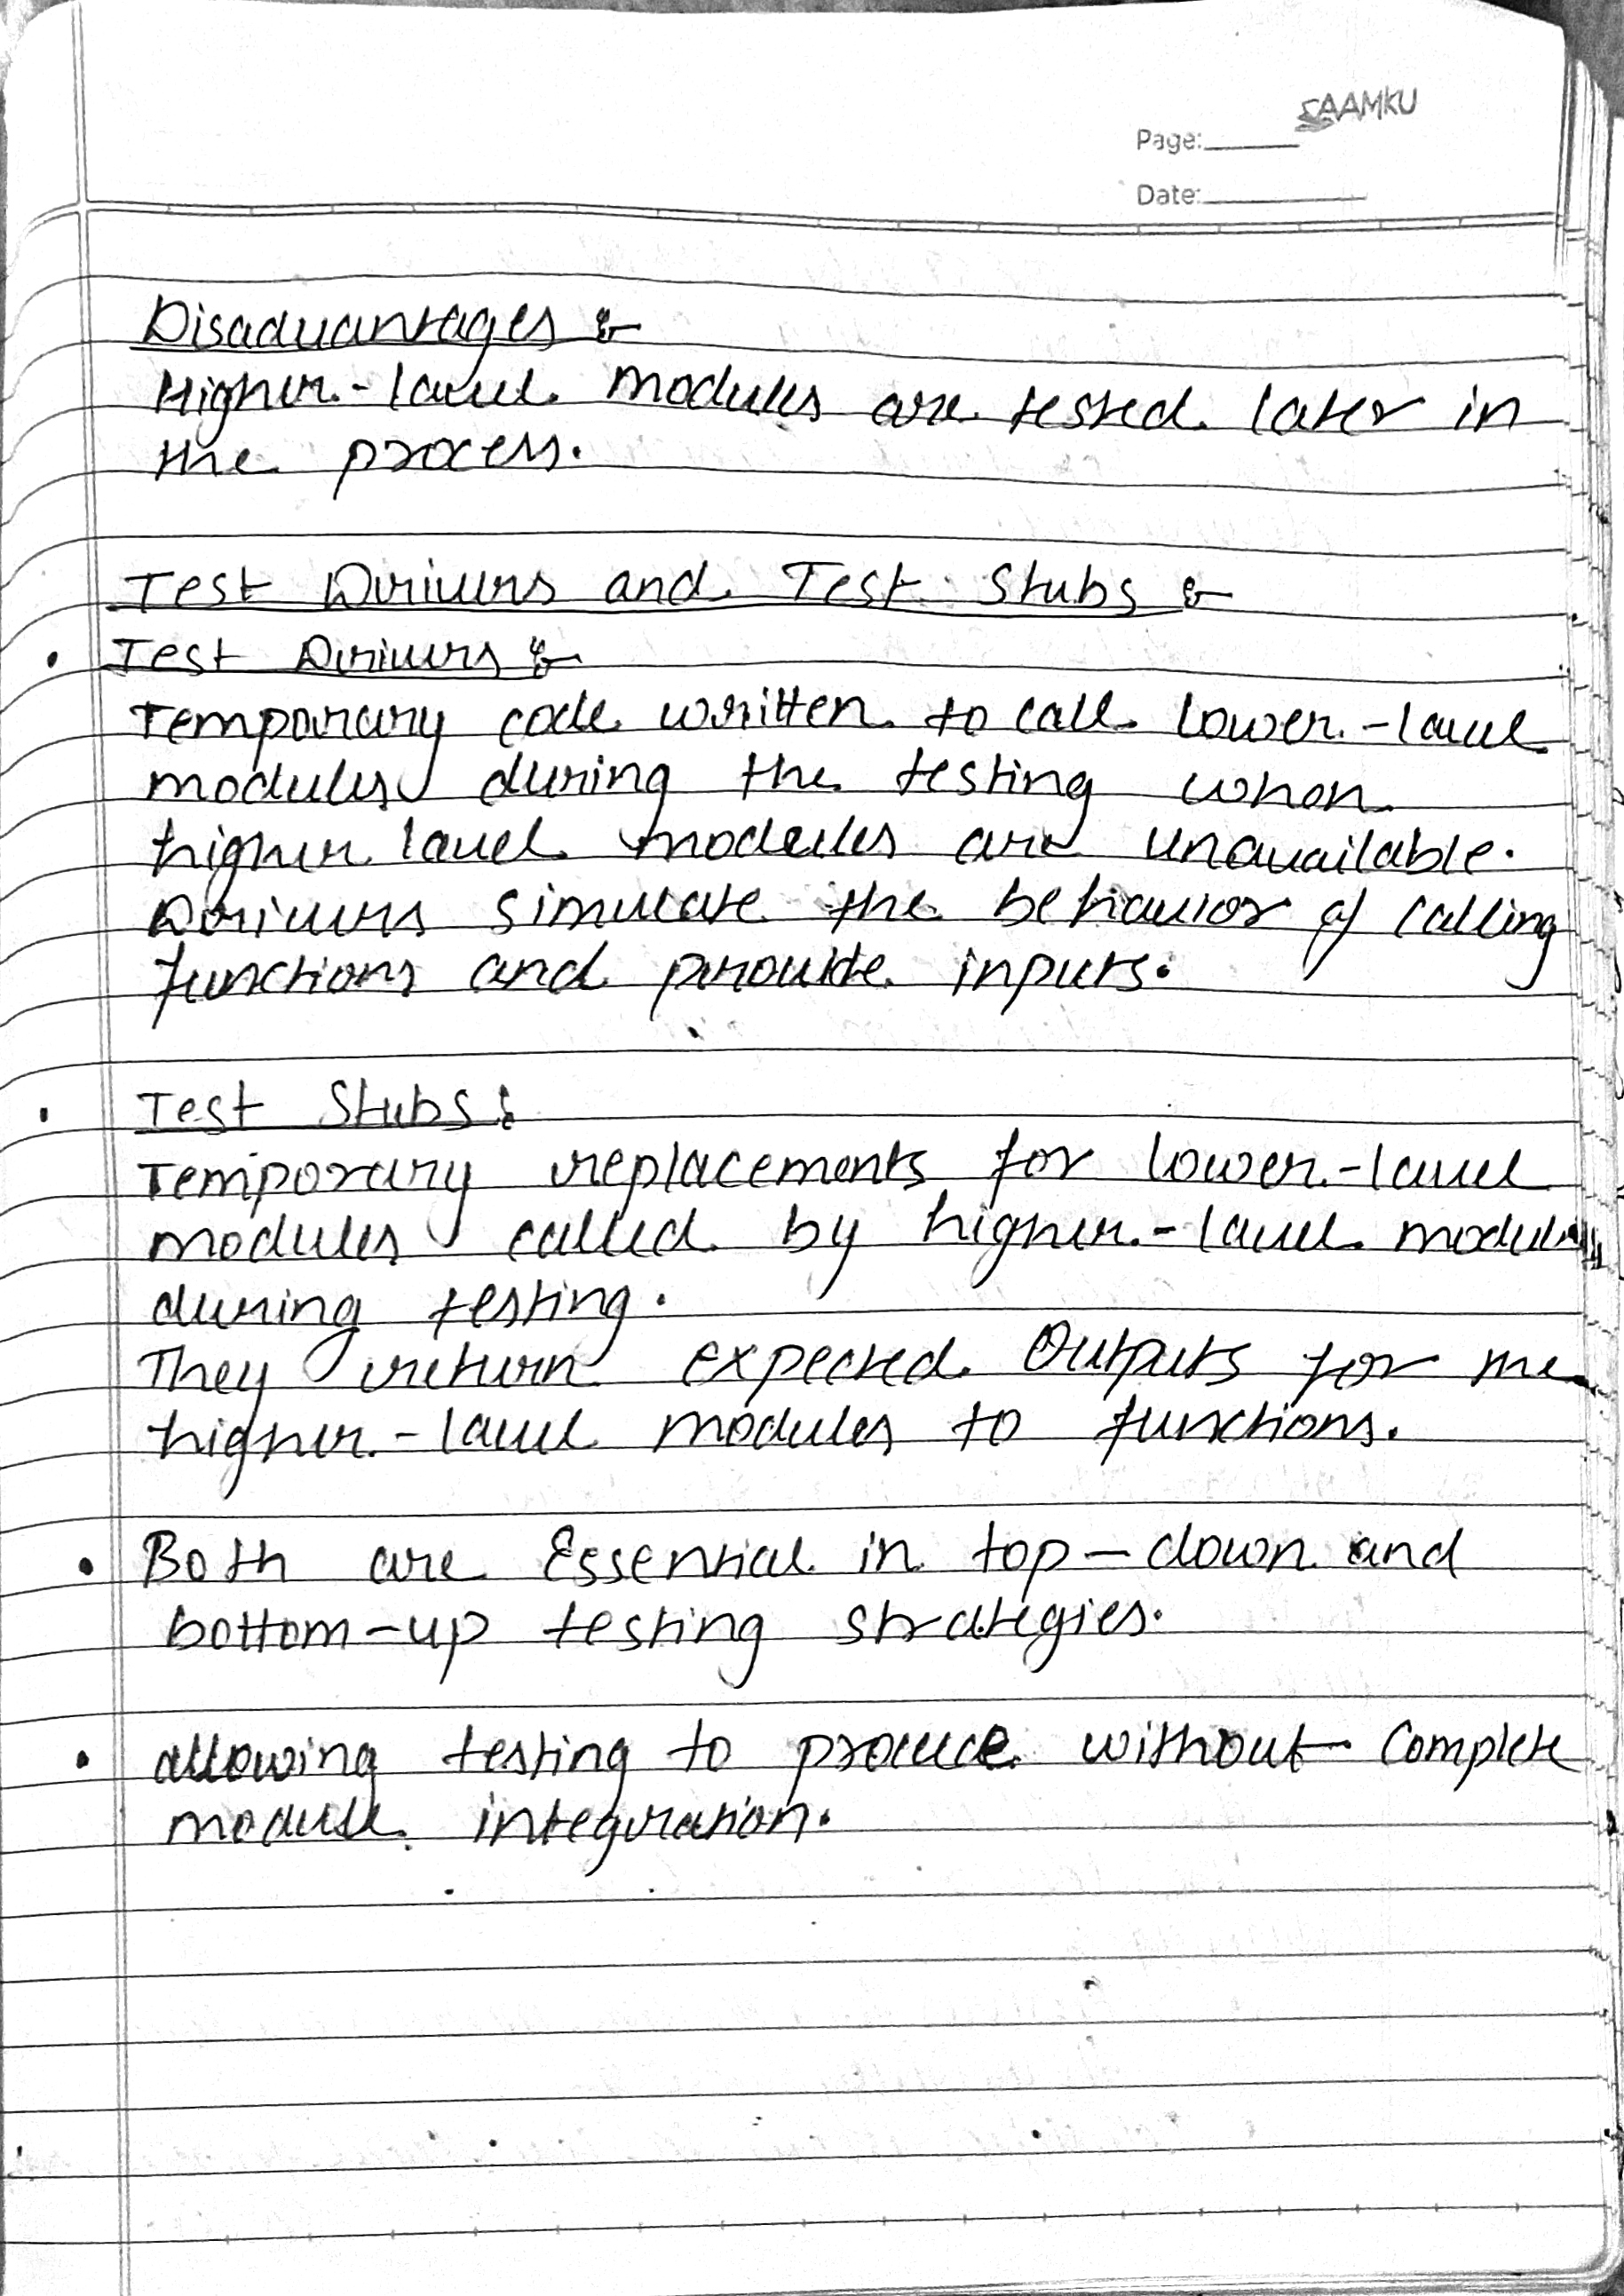 SAAMKU
Page:
Date:
Disadvantages :-
Higher-level modules are tested later in
the process.
Test Drivers and Test Stubs :-
• Test Drivers :-
Temporary code written to call lower-level
modules during the testing when
higher level modules are unavailable.
Drivers simulate the behavior of calling
functions and provide inputs.
• Test Stubs :
Temporary replacements for lower-level
modules called by higher-level modules
during testing.
They return expected Outputs for the
higher-level modules to functions.
• Both are Essential in top-down and
bottom-up testing strategies.
• allowing testing to without complete
module integration.